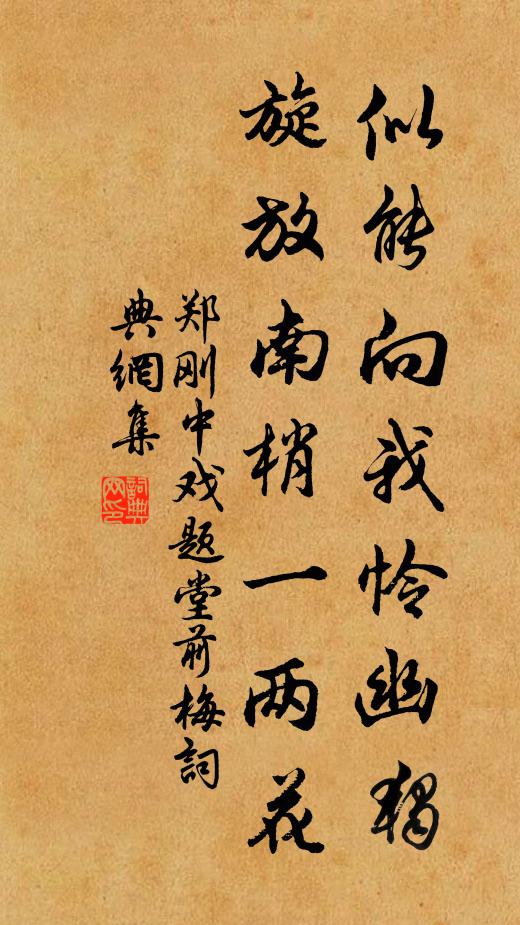 似能向我怜幽独
旋放南梢一两花
郑刚中戏题堂前梅詞
典網集
詞典
网印